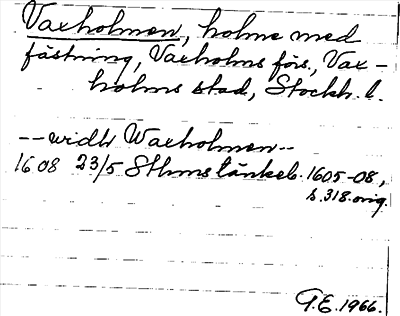 Vaxholmen, holme med
fästning, Vaxholms förs., Vax-
holms stad, Stockh. l.
-- widh Waxholmen --
1608 23/5 Sthms tänkeb. 1605-08,
s. 318. orig.
G.E. 1966.